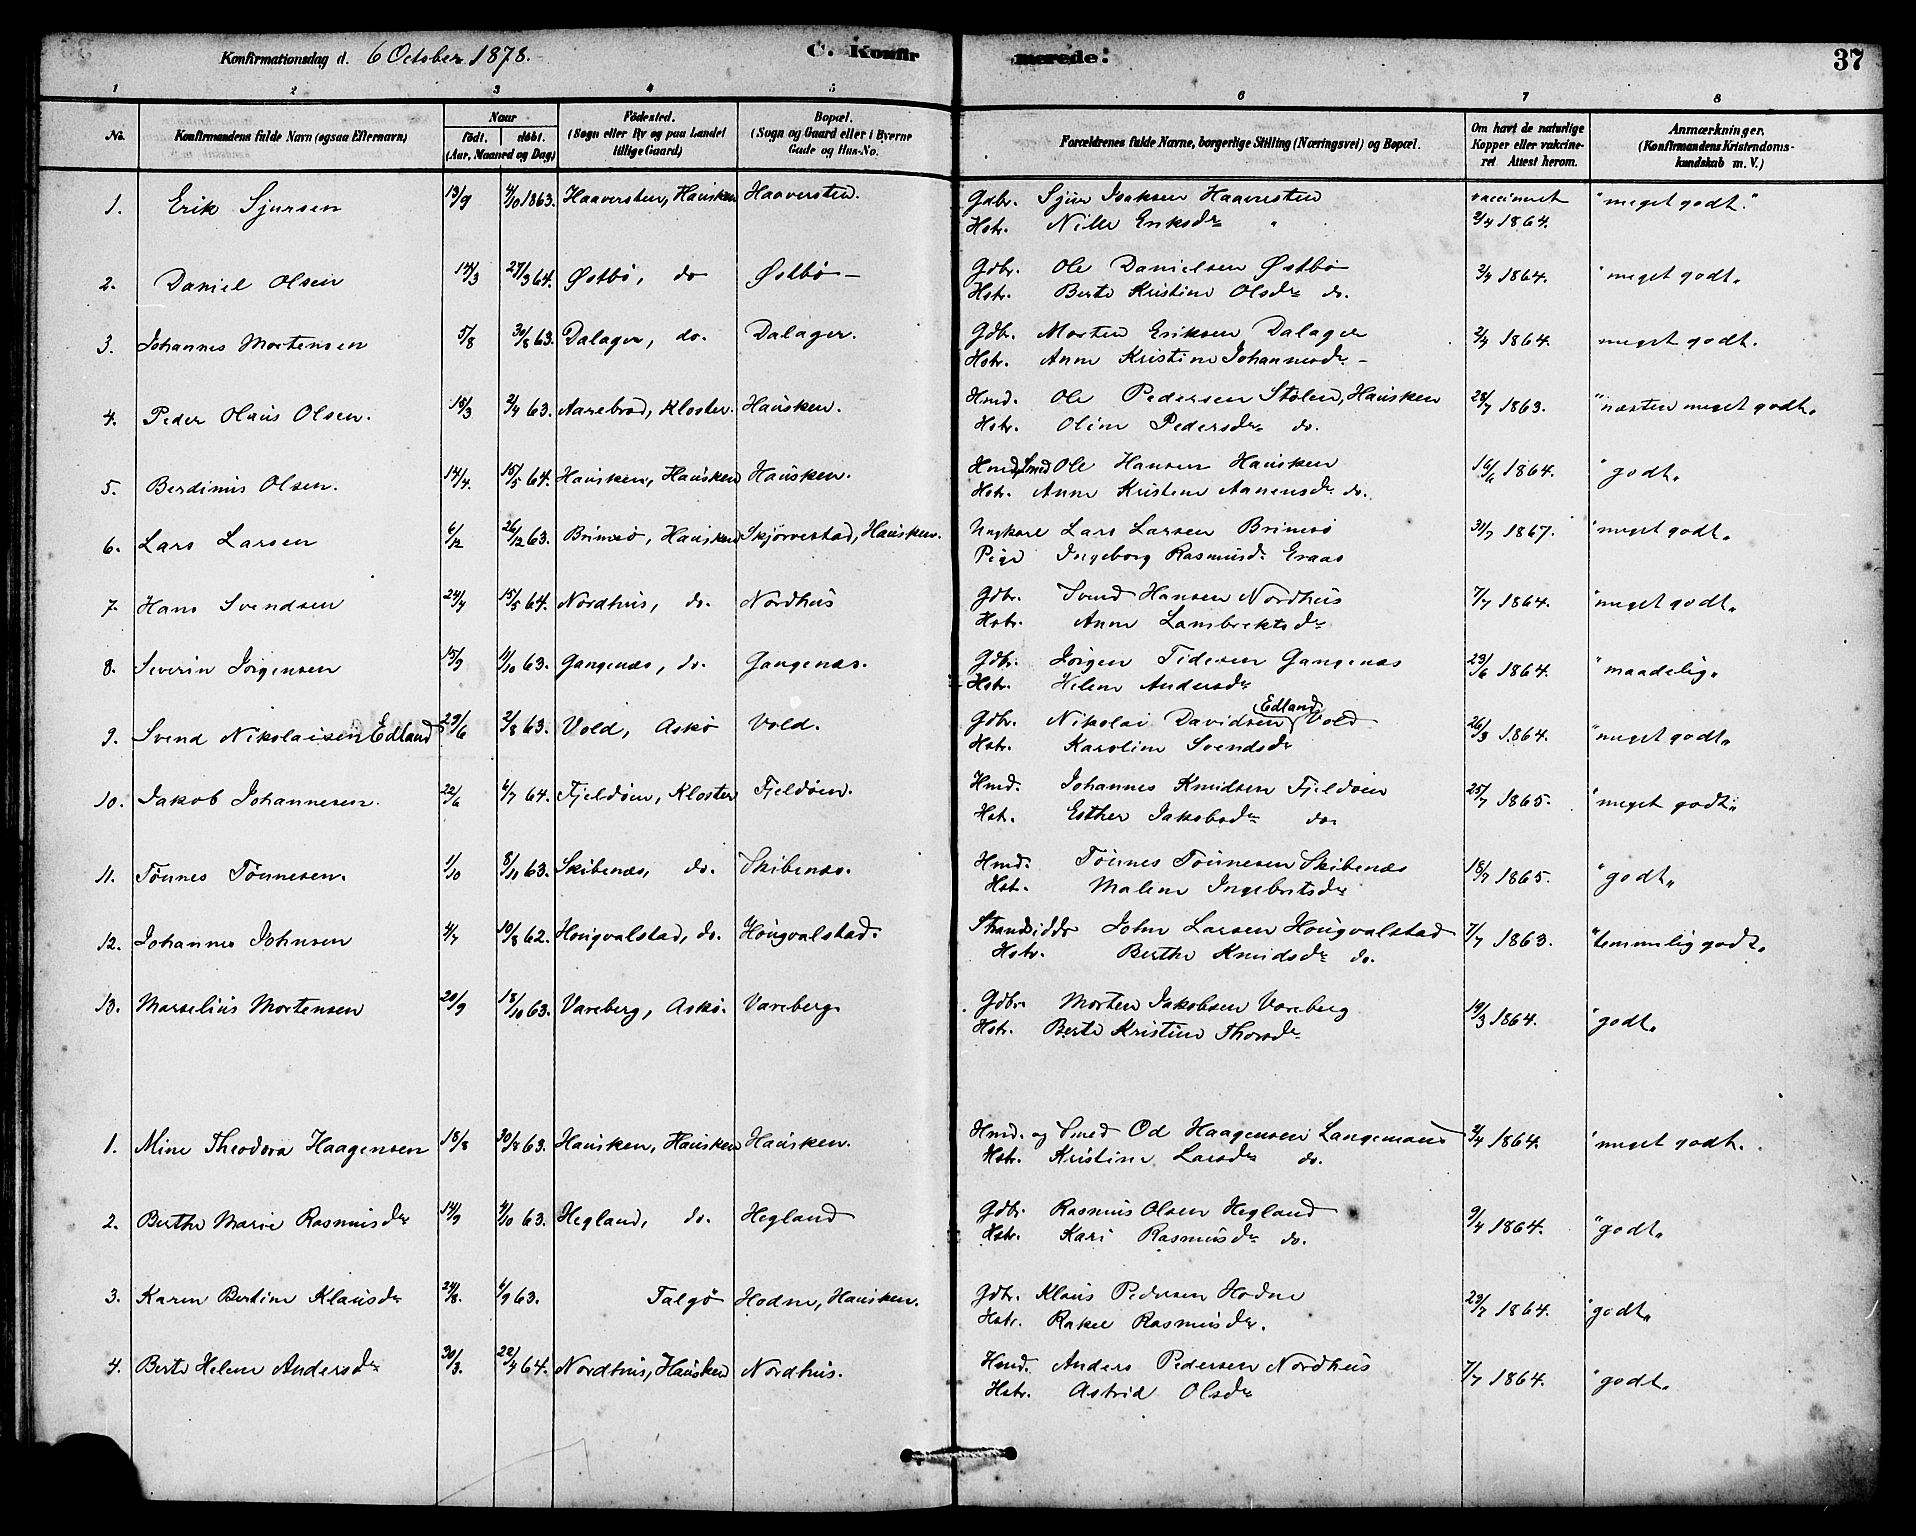 Konfirmationsdag d. 6 October 1878. C. Konfirmerede: 37
1 2 3 4 5 6 7 8
No. Konfirmandens fulde Navn (ogsaa Efternavn) Naar födt. döbt. (Aar, Maaned og Dag) Födested. (Sogn eller By og paa Landet tillige Gaard) Bopæl. (Sogn og Gaard eller i Byerne Gade og Hus-No. Forældrenes fulde Navne, borgerlige Stilling (Næringsvei) og Bopæl. Om havt de naturlige Kopper eller vakcineret Attest herom. Anmærkninger. (Konfirmandens Kristendomskundskab m. V.)
1. Erik Sjursen 13/9 4/10 1863. Haaversten, Hausken Haaversten. Gdbr. Sjur Isaksen Haaversten vaccineret 2/4 1864. "meget godt."
Hstr. Nille Eriksdr "
2. Daniel Olsen 14/3 27/3 64. Østbö, do Østbö – Gdbr. Ole Danielsen Østbö 2/4 1864. "meget godt"
Hstr. Berte Kristine Olsdr do.
3. Johannes Mortensen 5/8 30/8 63. Dalager, do. Dalager. Gdbr. Morten Eriksen Dalager 2/4 1864. meget godt.
Hstr. Anne Kristine Johannesdr –
4. Peder Olaus Olsen. 15/3 2/4 63. Aarebrod, Kloster. Hausken. Hmd. Ole Pedersen Stolen, Hausken 28/7 1863. "næsten meget godt"
Hstr. Oline Pedersdr do.
5. Berdinus Olsen. 14/4. 15/5 64. Hausken, Hausken Hausken. Hmd, Smed Ole Hansen Hausken 16/6 1864. "godt"
Hstr. Anne Kristine Aanensdr do.
6. Lars Larsen 6/12 26/12 63. Brimsö, Hausken Skjörvestad, Hausken. Ungkarl Lars Larsen Brimsö 31/7 1867. "meget godt"
Pige Ingeborg Rasmusdr Eraas
7. Hans Svendsen 24/4 15/5 64. Nordhus, do. Nordhus Gdbr. Svend Hansen Nordhus 7/7 1864. "meget godt"
Hstr. Anne Lambrektsdr
8. Severin Jörgensen 15/9 11/10 63. Gangenæs, do. Gangenæs. Gdbr. Jörgen Tidesen Gangenæs 23/6 1864. "maadelig"
Hstr. Helene Andersdr
9. Svend Nikolaisen Edland 29/6 2/8 63. Vold, Askö Vold. Gdbr. Nikolai Davidsen Edland Vold 26/3 1864. "meget godt"
Hstr. Karoline Svendsdr
10. Jakob Johannesen. 22/6 6/7 64. Fjeldöen, Kloster Fjeldöen. Hmd. Johannes Knudsen Fjeldöen 25/7 1865. "meget godt"
Hst. Esther Jakobsdr do.
11. Tönnes Tönnesen. 1/10 8/11 63. Skibenæs, do. Skibenæs. Hmd. Tönnes Tönnesen Skibenæs 18/7 1865. "godt"
Hst. Malene Ingebritsdr
12. Johannes Johnsen 4/7 10/8 62. Hougvalstad, do. Hougvalstad. Strandsidder John Larsen Hougvalstad 7/7 1863. "temmelig godt"
Hstr. Berthe Knudsdr do.
13. Marselius Mortensen 20/9 18/10 63. Vareberg, Askö. Vareberg Gdbr. Morten Jakobsen Vareberg 19/3 1864. "godt"
Hstr. Berte Kristine Thorsdr
1. Mine Theodora Haagensen 18/8 30/8 63. Hausken, Hausken Hausken. Hmd. og Smed Od Haagensen Langemaas 2/4 1864. "meget godt.
Hstr. Kristine Larsdr do.
2. Berthe Marie Rasmusdr 14/9 4/10 63. Hegland, do. Hegland Gdbr. Rasmus Olsen Hegland 9/4 1864. "godt"
Hstr. Kari Rasmusdr do.
3. Karen Bertine Klausdr 24/8. 6/9 63. Talgö Hodne, Hausken. Gdbr. Klaus Pedersen Hodne 23/7 1864. "godt"
Hstr. Rakel Rasmusdr.
4. Berte Helene Andersdr 30/3. 22/4 64. Nordhus, Hausken Nordhus. Hmd. Anders Pedersen Nordhus 7/7 1864. "godt"
Hstr. Astrid Olsdr